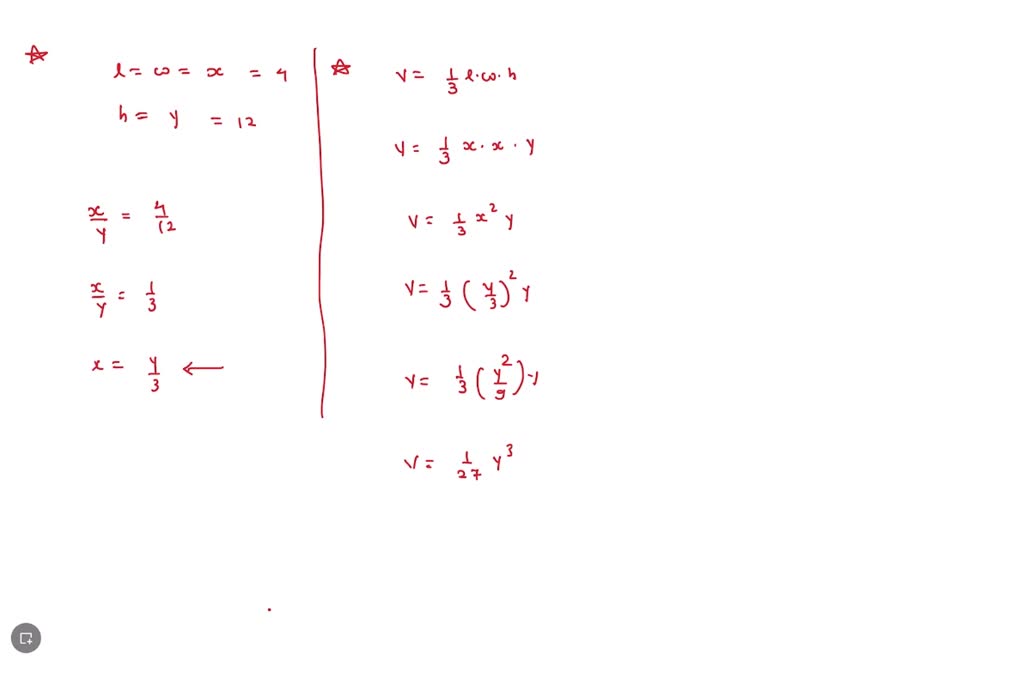 l = w = x = 4
h = y = 12
x/y = 4/12
x/y = 1/3
x = y/3 ←
V = 1/3 l·w·h
V = 1/3 x·x·y
V = 1/3 x² y
V = 1/3 (y/3)² y
V = 1/3 (y²/9)·y
V = 1/27 y³